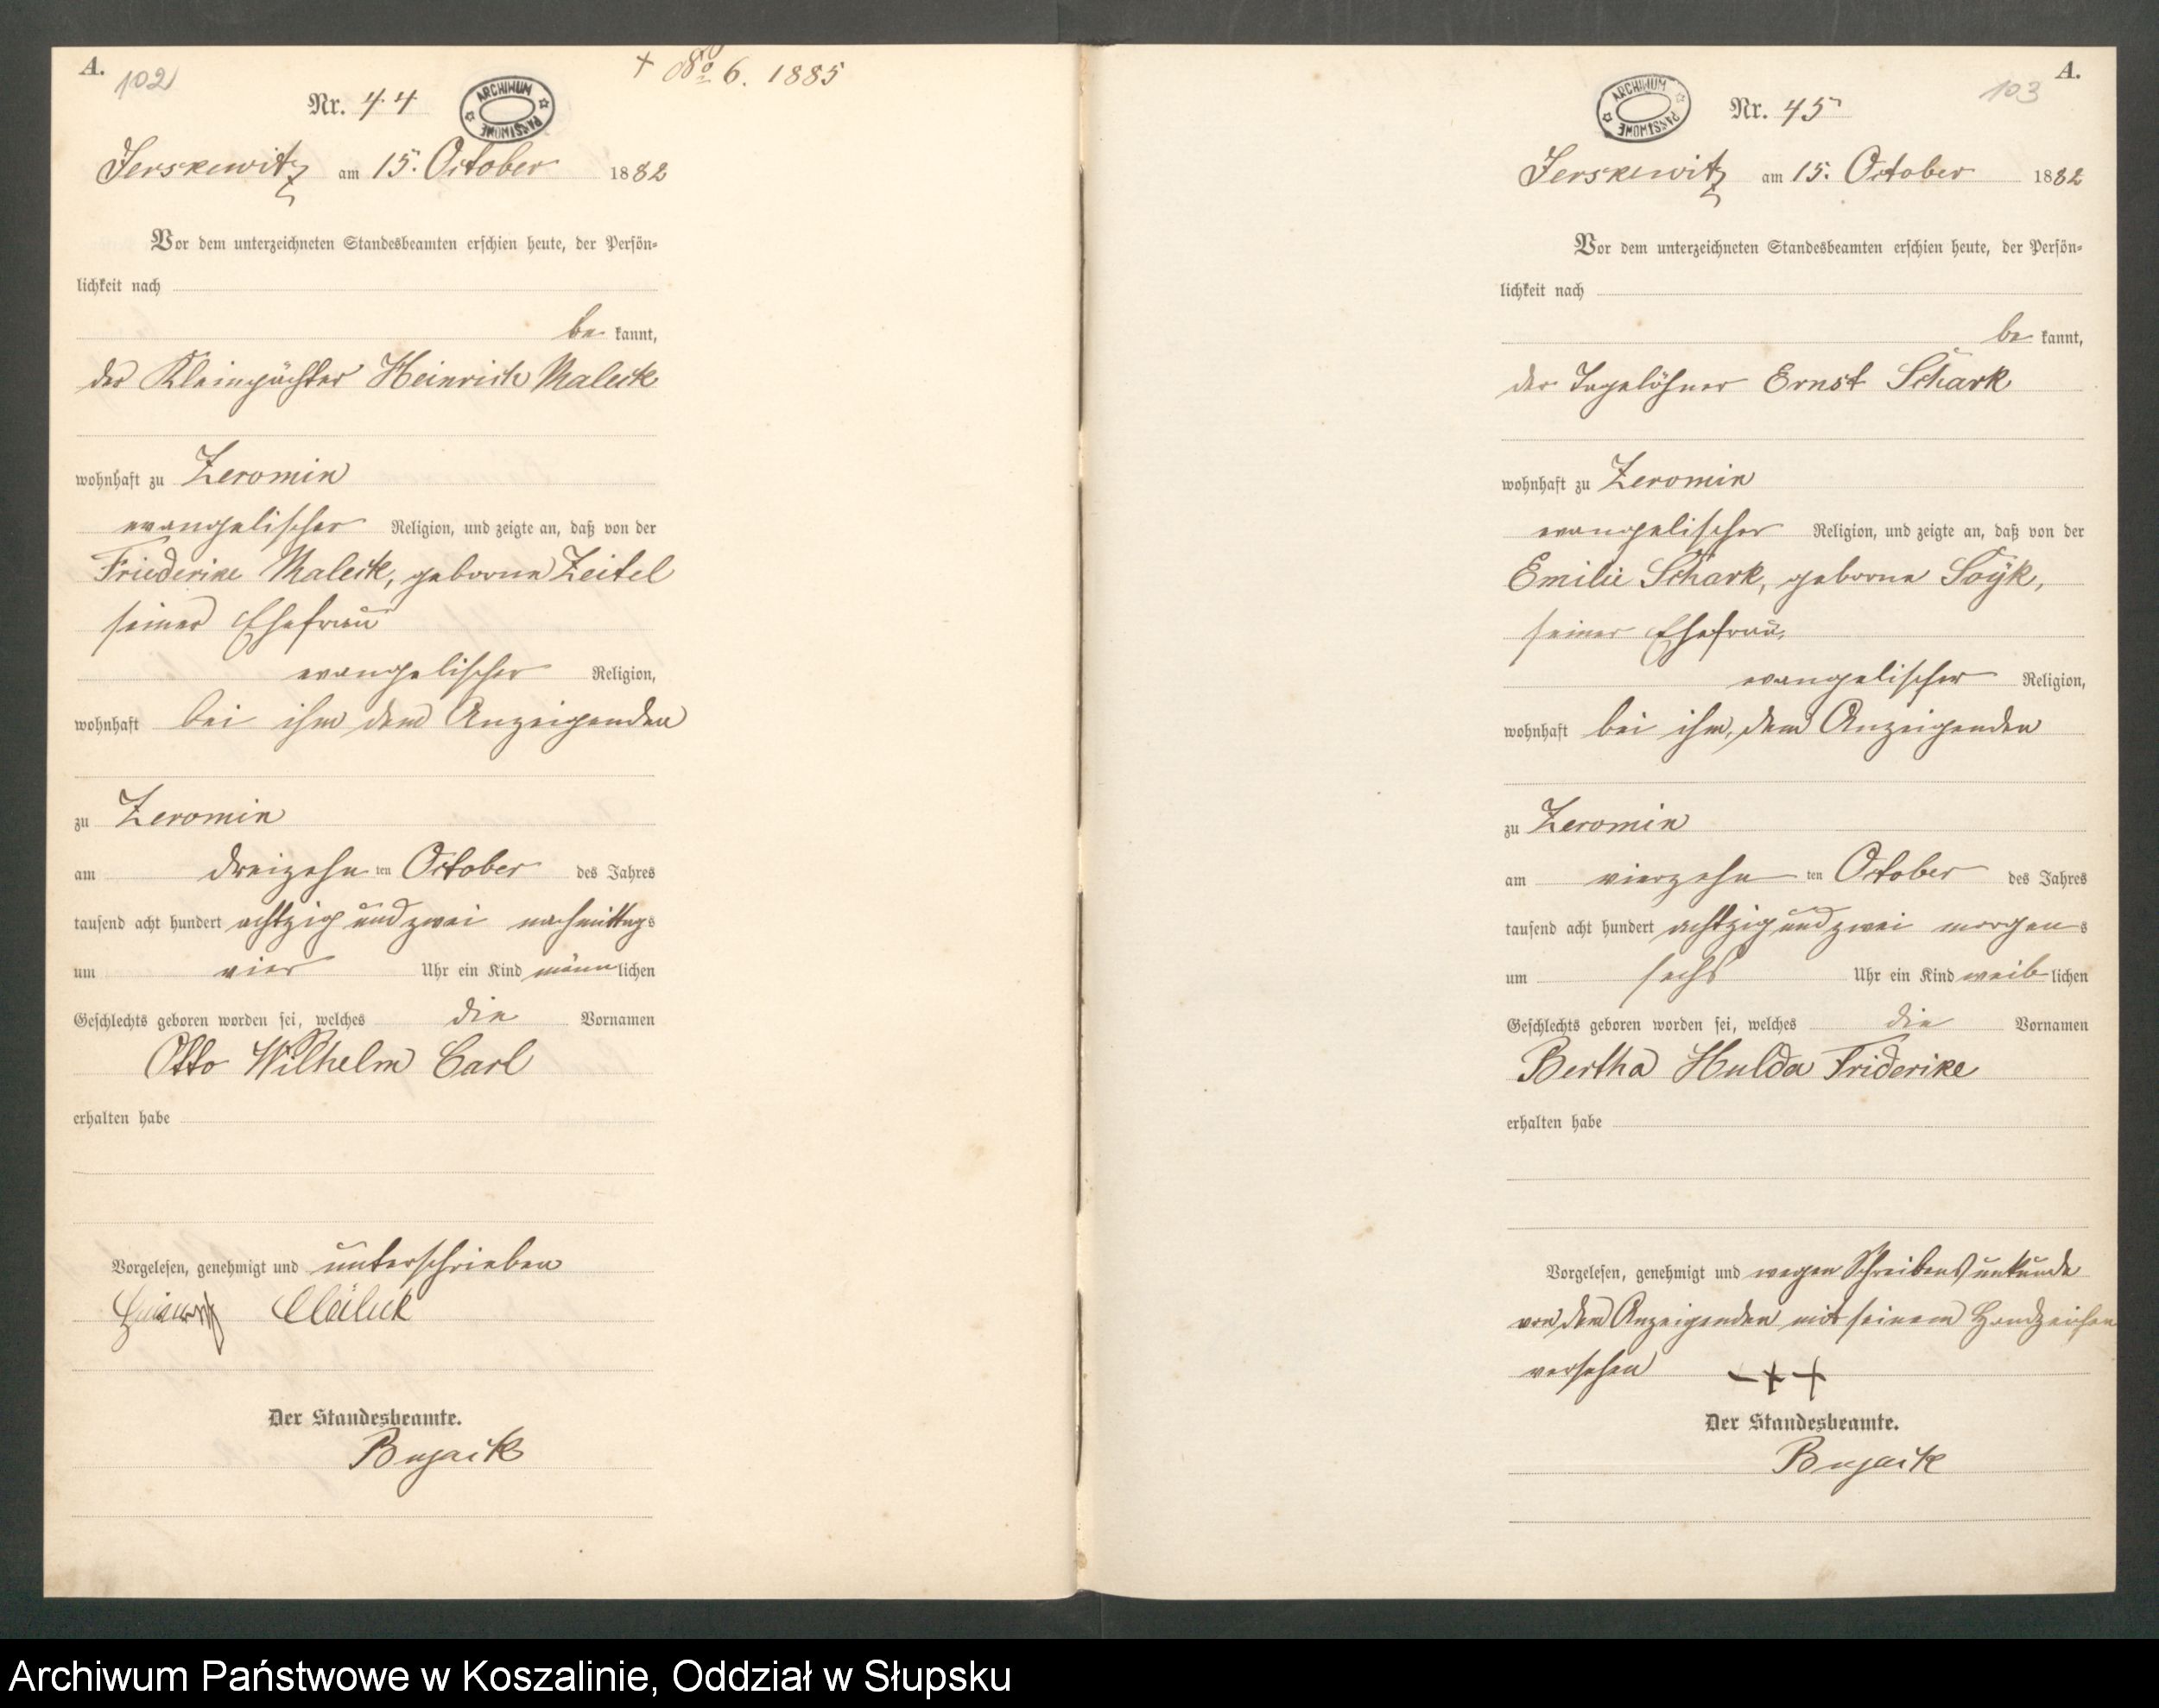 A.
102
+ No 6. 1885
Nr. 44
ARCHIWUM PAŃSTWOWE
Jerskewitz am 15. October 1882
Vor dem unterzeichneten Standesbeamten erschien heute, der Persön-
lichkeit nach
be kannt,
der Kleinpächter Heinrich Maleck
wohnhaft zu Zeromin
evangelischer Religion, und zeigte an, daß von der
Friederike Maleck, geborne Zeitel
seiner Ehefrau
evangelischer Religion,
wohnhaft bei ihm dem Anzeigenden
zu Zeromin
am dreizehn ten October des Jahres
tausend acht hundert achtzig und zwei nachmittags
um vier Uhr ein Kind männlichen
Geschlechts geboren worden sei, welches die Vornamen
Otto Wilhelm Carl
erhalten habe
Vorgelesen, genehmigt und unterschrieben
Heinrich
Der Standesbeamte.
Bujack
A.
103
ARCHIWUM PAŃSTWOWE
Nr. 45
Jerskewitz am 15. October 1882
Vor dem unterzeichneten Standesbeamten erschien heute, der Persön-
lichkeit nach
be kannt,
der Tagelöhner Ernst Schark
wohnhaft zu Zeromin
evangelischer Religion, und zeigte an, daß von der
Emilie Schark, geborne Soÿk,
seiner Ehefrau,
evangelischer Religion,
wohnhaft bei ihm, dem Anzeigenden
zu Zeromin
am vierzehn ten October des Jahres
tausend acht hundert achtzig und zwei morgens
um sechs Uhr ein Kind weiblichen
Geschlechts geboren worden sei, welches die Vornamen
Bertha Hulda Friderike
erhalten habe
Vorgelesen, genehmigt und wegen Schreibensunkunde
von dem Anzeigenden mit seinem Handzeichen
versehen +++
Der Standesbeamte.
Bujack
Archiwum Państwowe w Koszalinie, Oddział w Słupsku